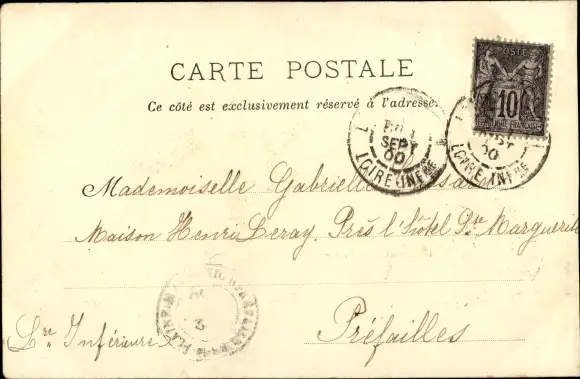 CARTE POSTALE
Ce côté est exclusivement réservé à l'adresse
POSTE
10
SEPT
00
LOIRE INFRE
00
LOIRE INFRE
Mademoiselle Gabrielle
Maison Henri Leray. Près l'hôtel Ste Marguerite
Lre Inférieure
Préfailles